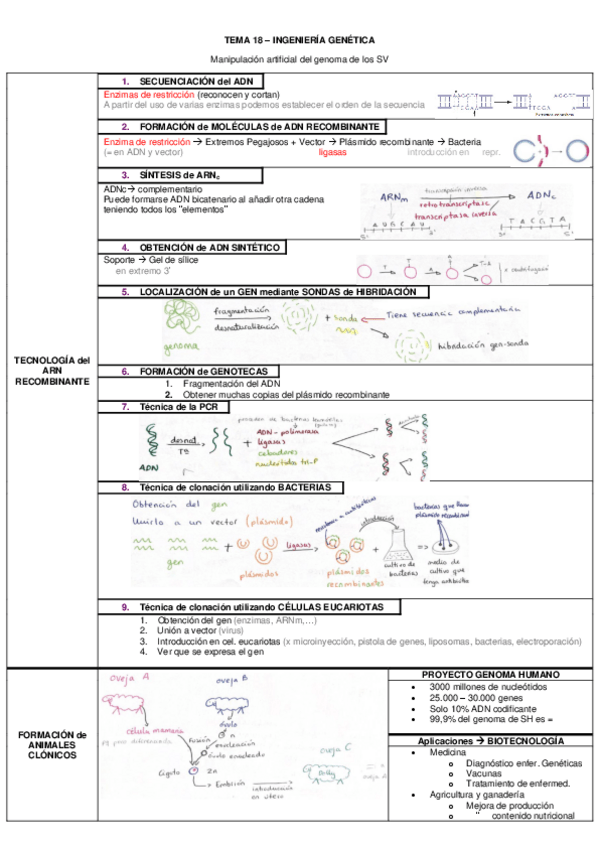 TEMA 18 – INGENIERÍA GENÉTICA
Manipulación artificial del genoma de los SV
TECNOLOGÍA del
ARN
RECOMBINANTE
1. SECUENCIACIÓN del ADN
Enzimas de restricción (reconocen y cortan)
A partir del uso de varias enzimas podemos establecer el orden de la secuencia
2. FORMACIÓN de MOLÉCULAS de ADN RECOMBINANTE
Enzima de restricción → Extremos Pegajosos + Vector → Plásmido recombinante → Bacteria
(= en ADN y vector) ligasas introducción en repr.
3. SÍNTESIS de ARNc
ADNc → complementario
Puede formarse ADN bicatenario al añadir otra cadena
teniendo todos los "elementos"
transcripción inversa
ARNm → ADNc
retrotranscriptasa
transcriptasa inversa
4. OBTENCIÓN de ADN SINTÉTICO
Soporte → Gel de sílice
en extremo 3'
5. LOCALIZACIÓN de un GEN mediante SONDAS de HIBRIDACIÓN
fragmentación
desnaturalización
genoma
+ sonda ← Tiene secuencia complementaria
hibridación gen-sonda
6. FORMACIÓN de GENOTECAS
1. Fragmentación del ADN
2. Obtener muchas copias del plásmido recombinante
7. Técnica de la PCR
ADN
desnat.
Tª
+ ADN-polimerasa
ligasas
cebadores
nucleótidos tri-P
8. Técnica de clonación utilizando BACTERIAS
Obtención del gen
Unirlo a un vector (plásmido)
gen
+
plásmidos
ligasas
plásmidos
recombinantes
+
introducción
cultivo de
bacterias
⇒
bacterias que tienen
plásmido recombinante
medio de
cultivo que
tenga antibiótico
9. Técnica de clonación utilizando CÉLULAS EUCARIOTAS
1. Obtención del gen (enzimas, ARNm,…)
2. Unión a vector (virus)
3. Introducción en cel. eucariotas (x microinyección, pistola de genes, liposomas, bacterias, electroporación)
4. Ver que se expresa el gen
FORMACIÓN de
ANIMALES
CLÓNICOS
oveja A
oveja B
célula mamaria
fusión
enucleación
óvulo enucleado
cigoto 2n
Embrión introducción
en útero
oveja C
Dolly
PROYECTO GENOMA HUMANO
• 3000 millones de nucleótidos
• 25.000 – 30.000 genes
• Solo 10% ADN codificante
• 99,9% del genoma de SH es =
Aplicaciones → BIOTECNOLOGÍA
• Medicina
o Diagnóstico enfer. Genéticas
o Vacunas
o Tratamiento de enfermed.
• Agricultura y ganadería
o Mejora de producción
o " contenido nutricional